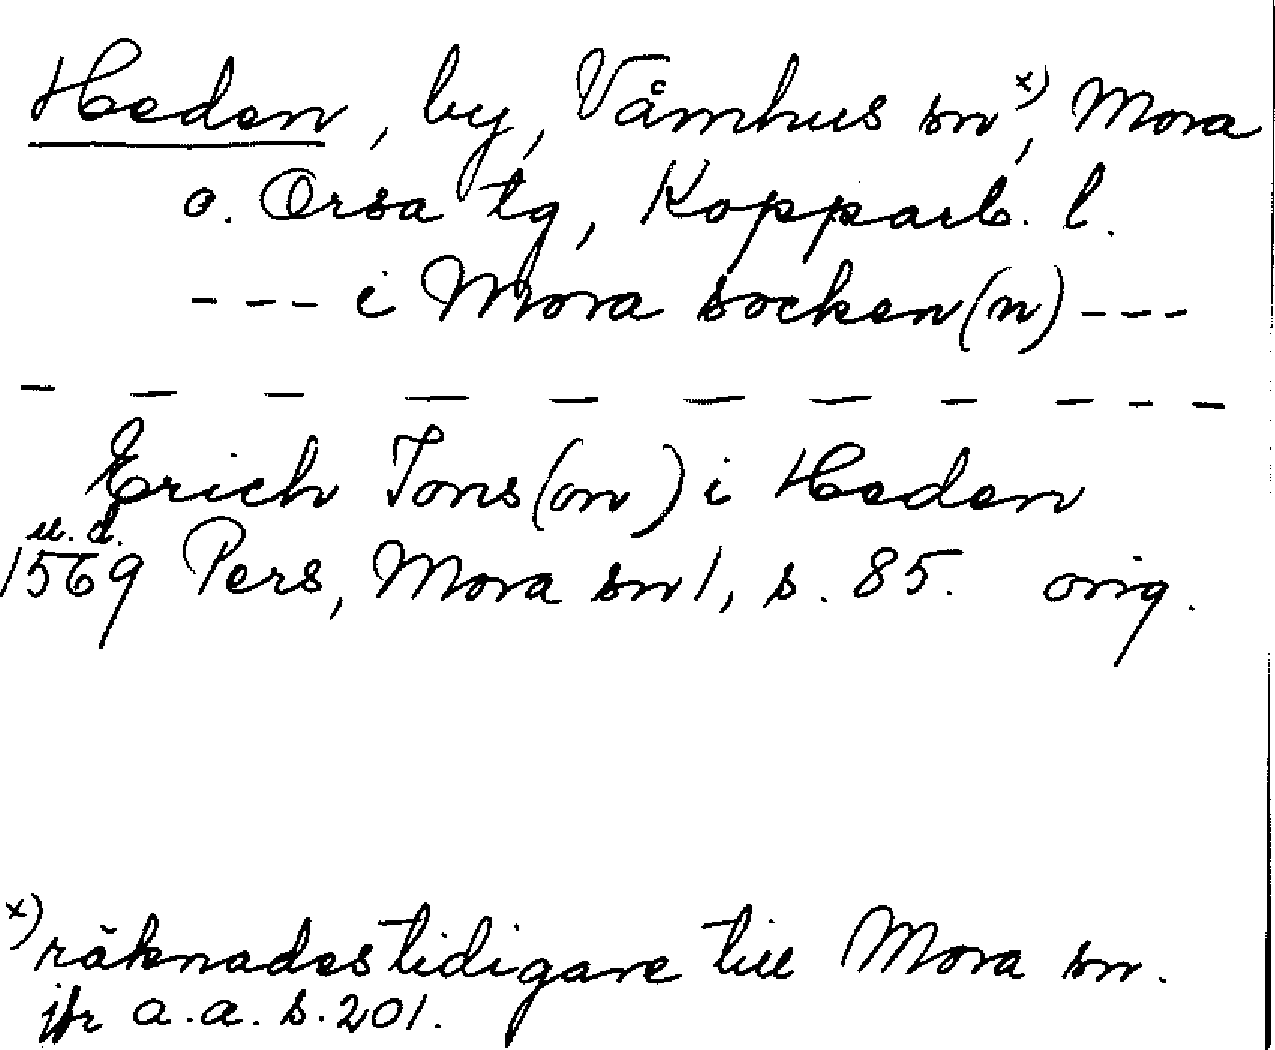 Heden, by, Våmhus sn x), Mora
o. Orsa tg, Kopparb. l.
--- i Mora socken(n) ---
- - - - - - - - - - -
Erich Jons(on) i Heden
u. d.
1569 Pers, Mora sn 1, s. 85. orig.
x) räknades tidigare till Mora sn.
jfr a.a. s. 201.